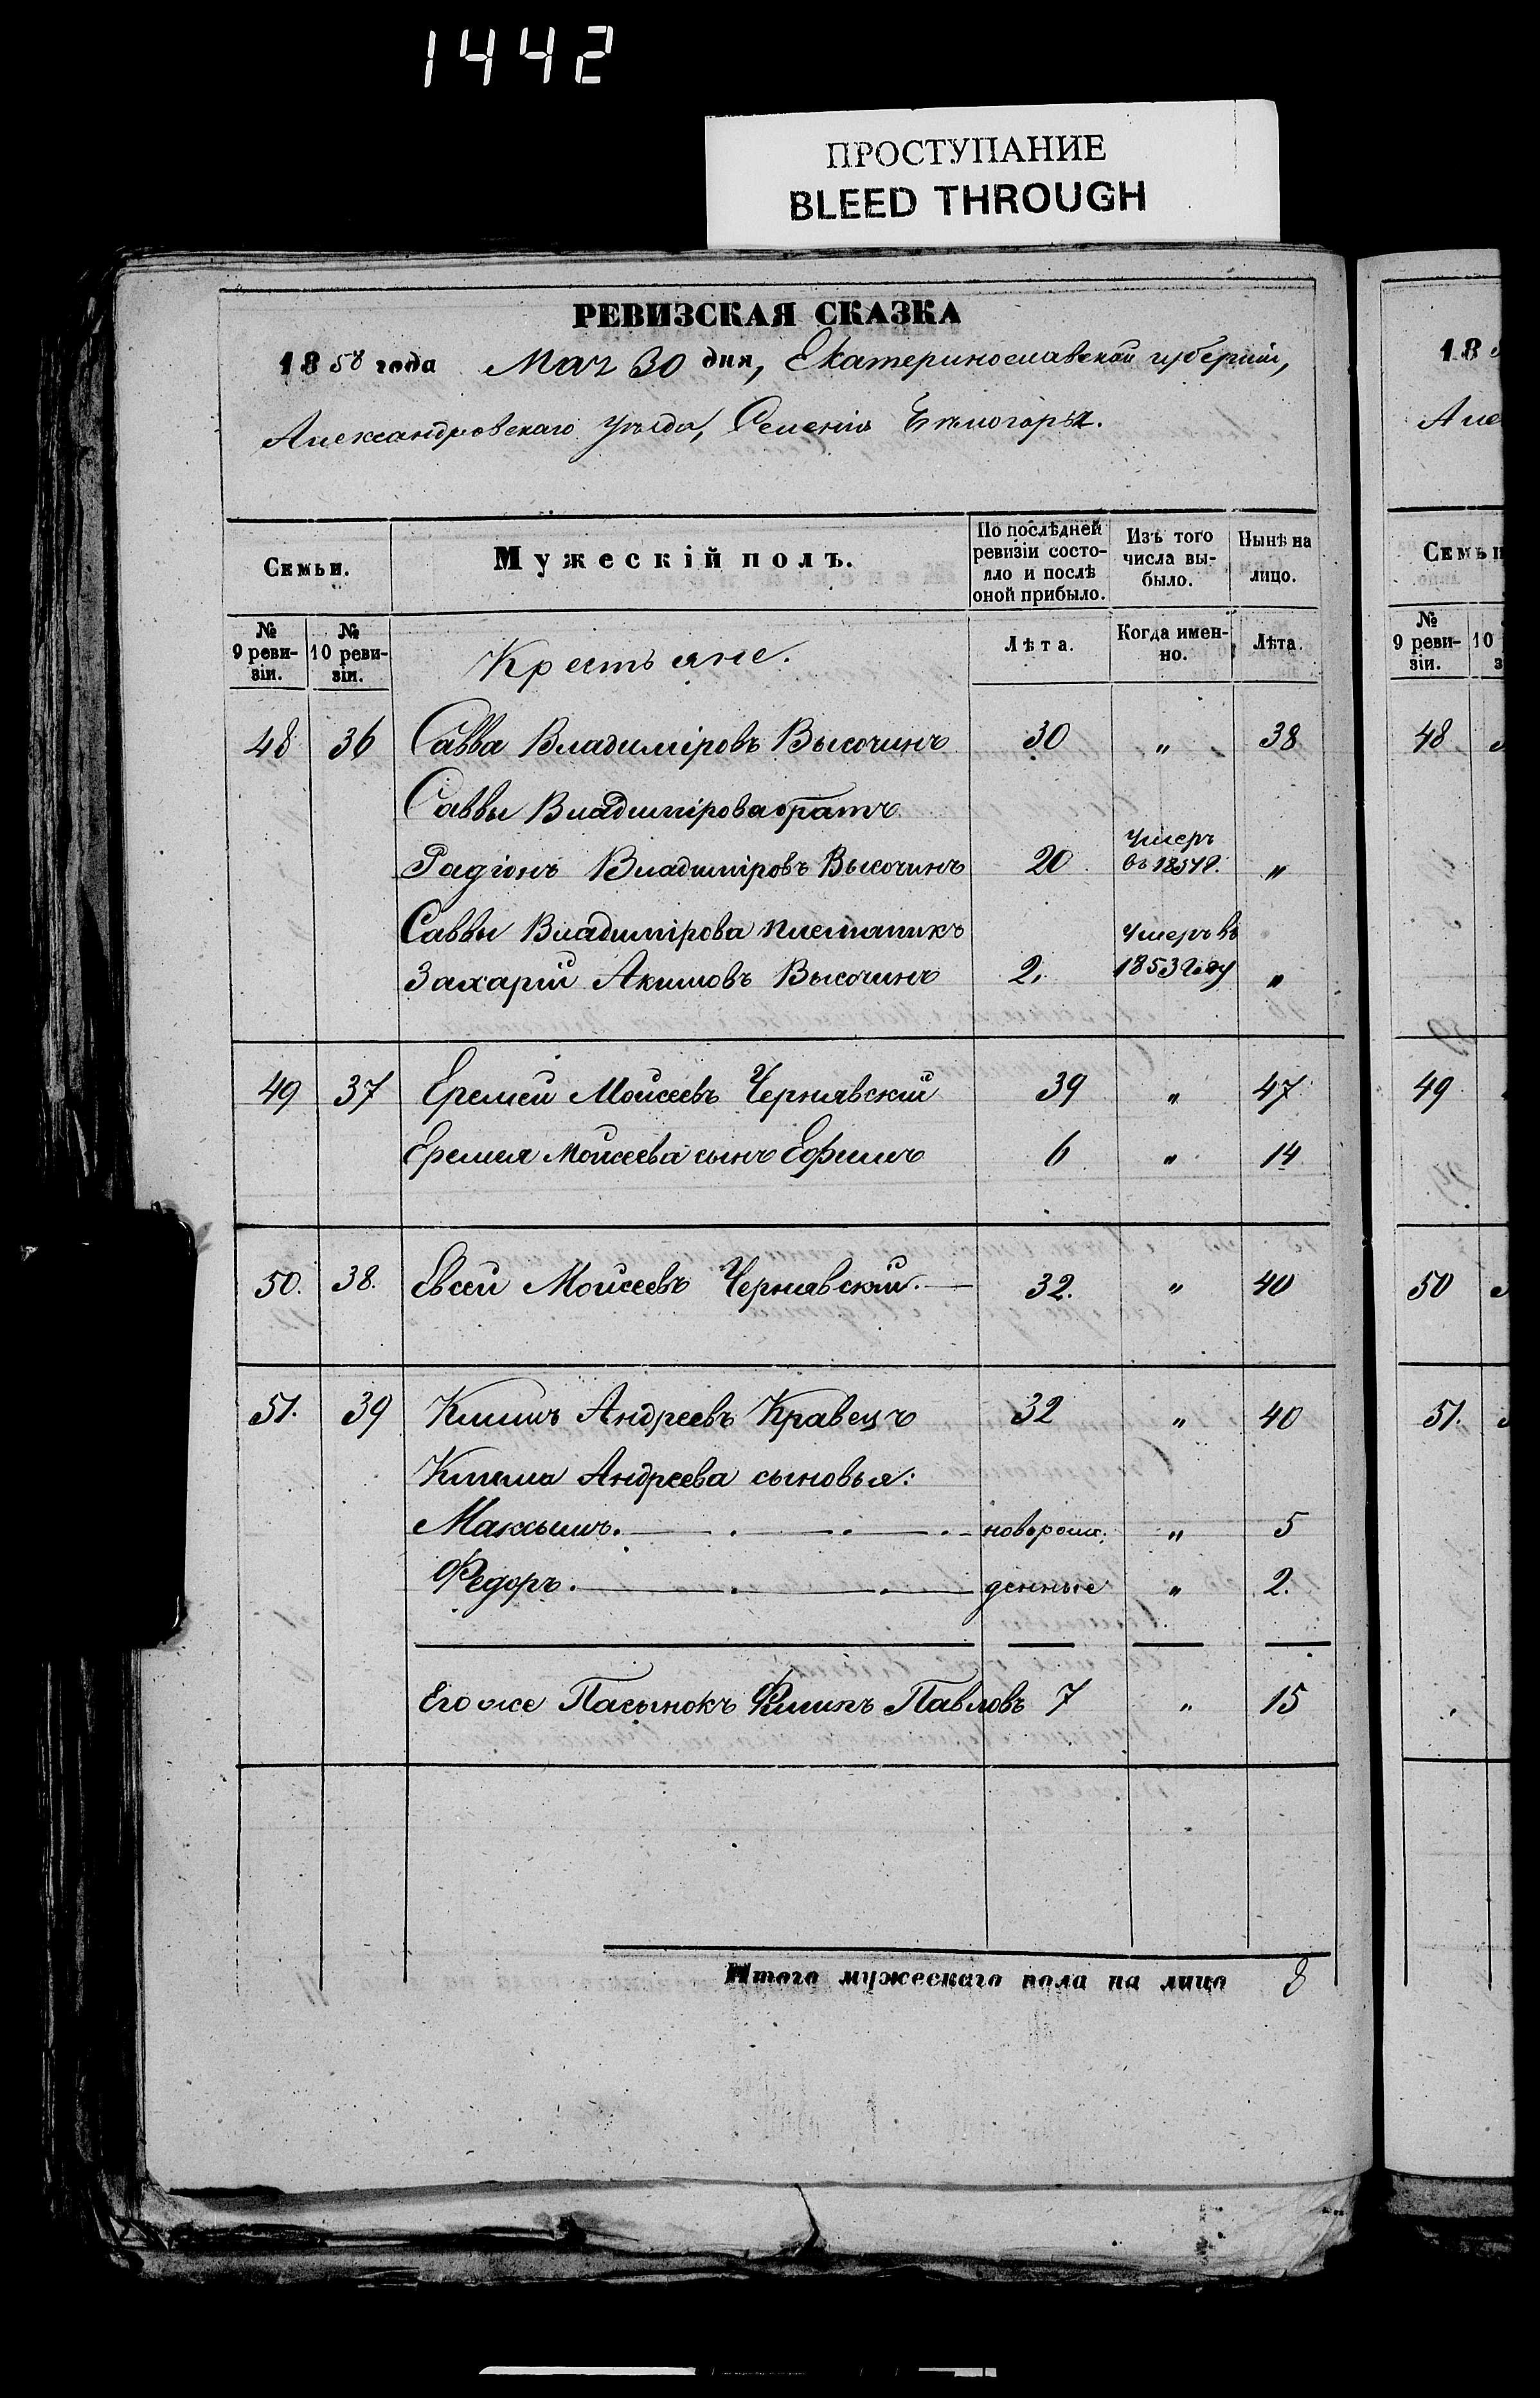 1442
ПРОСТУПАНИЕ
BLEED THROUGH
РЕВИЗСКАЯ СКАЗКА
1858 года Мая 30 дня, Екатеринославской губерніи,
Александровскаго уѣзда, Селенія Бѣлогорья.
Семьи.
Мужескій полъ.
По послѣдней ревизіи состояло и послѣ оной прибыло.
Изъ того числа выбыло.
Нынѣ на лицо.
№ 9 ревизіи.
№ 10 ревизіи.
Крестьяне.
Лѣта.
Когда именно.
Лѣта.
48 36 Савва Владиміровъ Высочинъ 30 " 38
Саввы Владимірова братъ
Радіонъ Владиміровъ Высочинъ 20 Умеръ въ 1857 г. "
Саввы Владимірова племяникъ
Захарій Акимовъ Высочинъ 2. Умеръ въ 1853 году "
49 37 Еремей Моисеевъ Чернявскій 39 " 47
Еремея Моисеева сынъ Ефимъ 6 " 14
50. 38. Евсей Моисеевъ Чернявскій. 32. " 40
51. 39 Климъ Андреевъ Кравецъ 32 " 40
Клима Андреева сыновья:
Максымъ. новорож. " 5
Федоръ. денные " 2.
Его же Пасынокъ Филипъ Павловъ 7 " 15
Итого мужескаго пола на лицо 8
18
Але
Семьи
№ 9 ревизіи.
10
48
49
50
51.